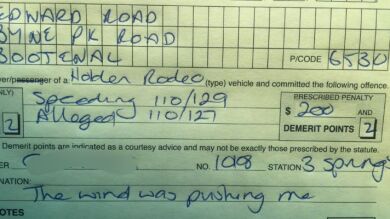 EDWARD ROAD
BYNE PK ROAD
BOOTENAL P/CODE 6530
ver/passenger of a Holden Rodeo (type) vehicle and committed the following offence.
NLY) Speeding 110/129 PRESCRIBED PENALTY
2 Alleged 110/127 $ 200 AND
DEMERIT POINTS 2
Demerit points are indicated as a courtesy advice and may not be exactly those prescribed by the statute.
ER C NO. 1018 STATION 3 Springs
NATION:
The wind was pushing me
NOTES